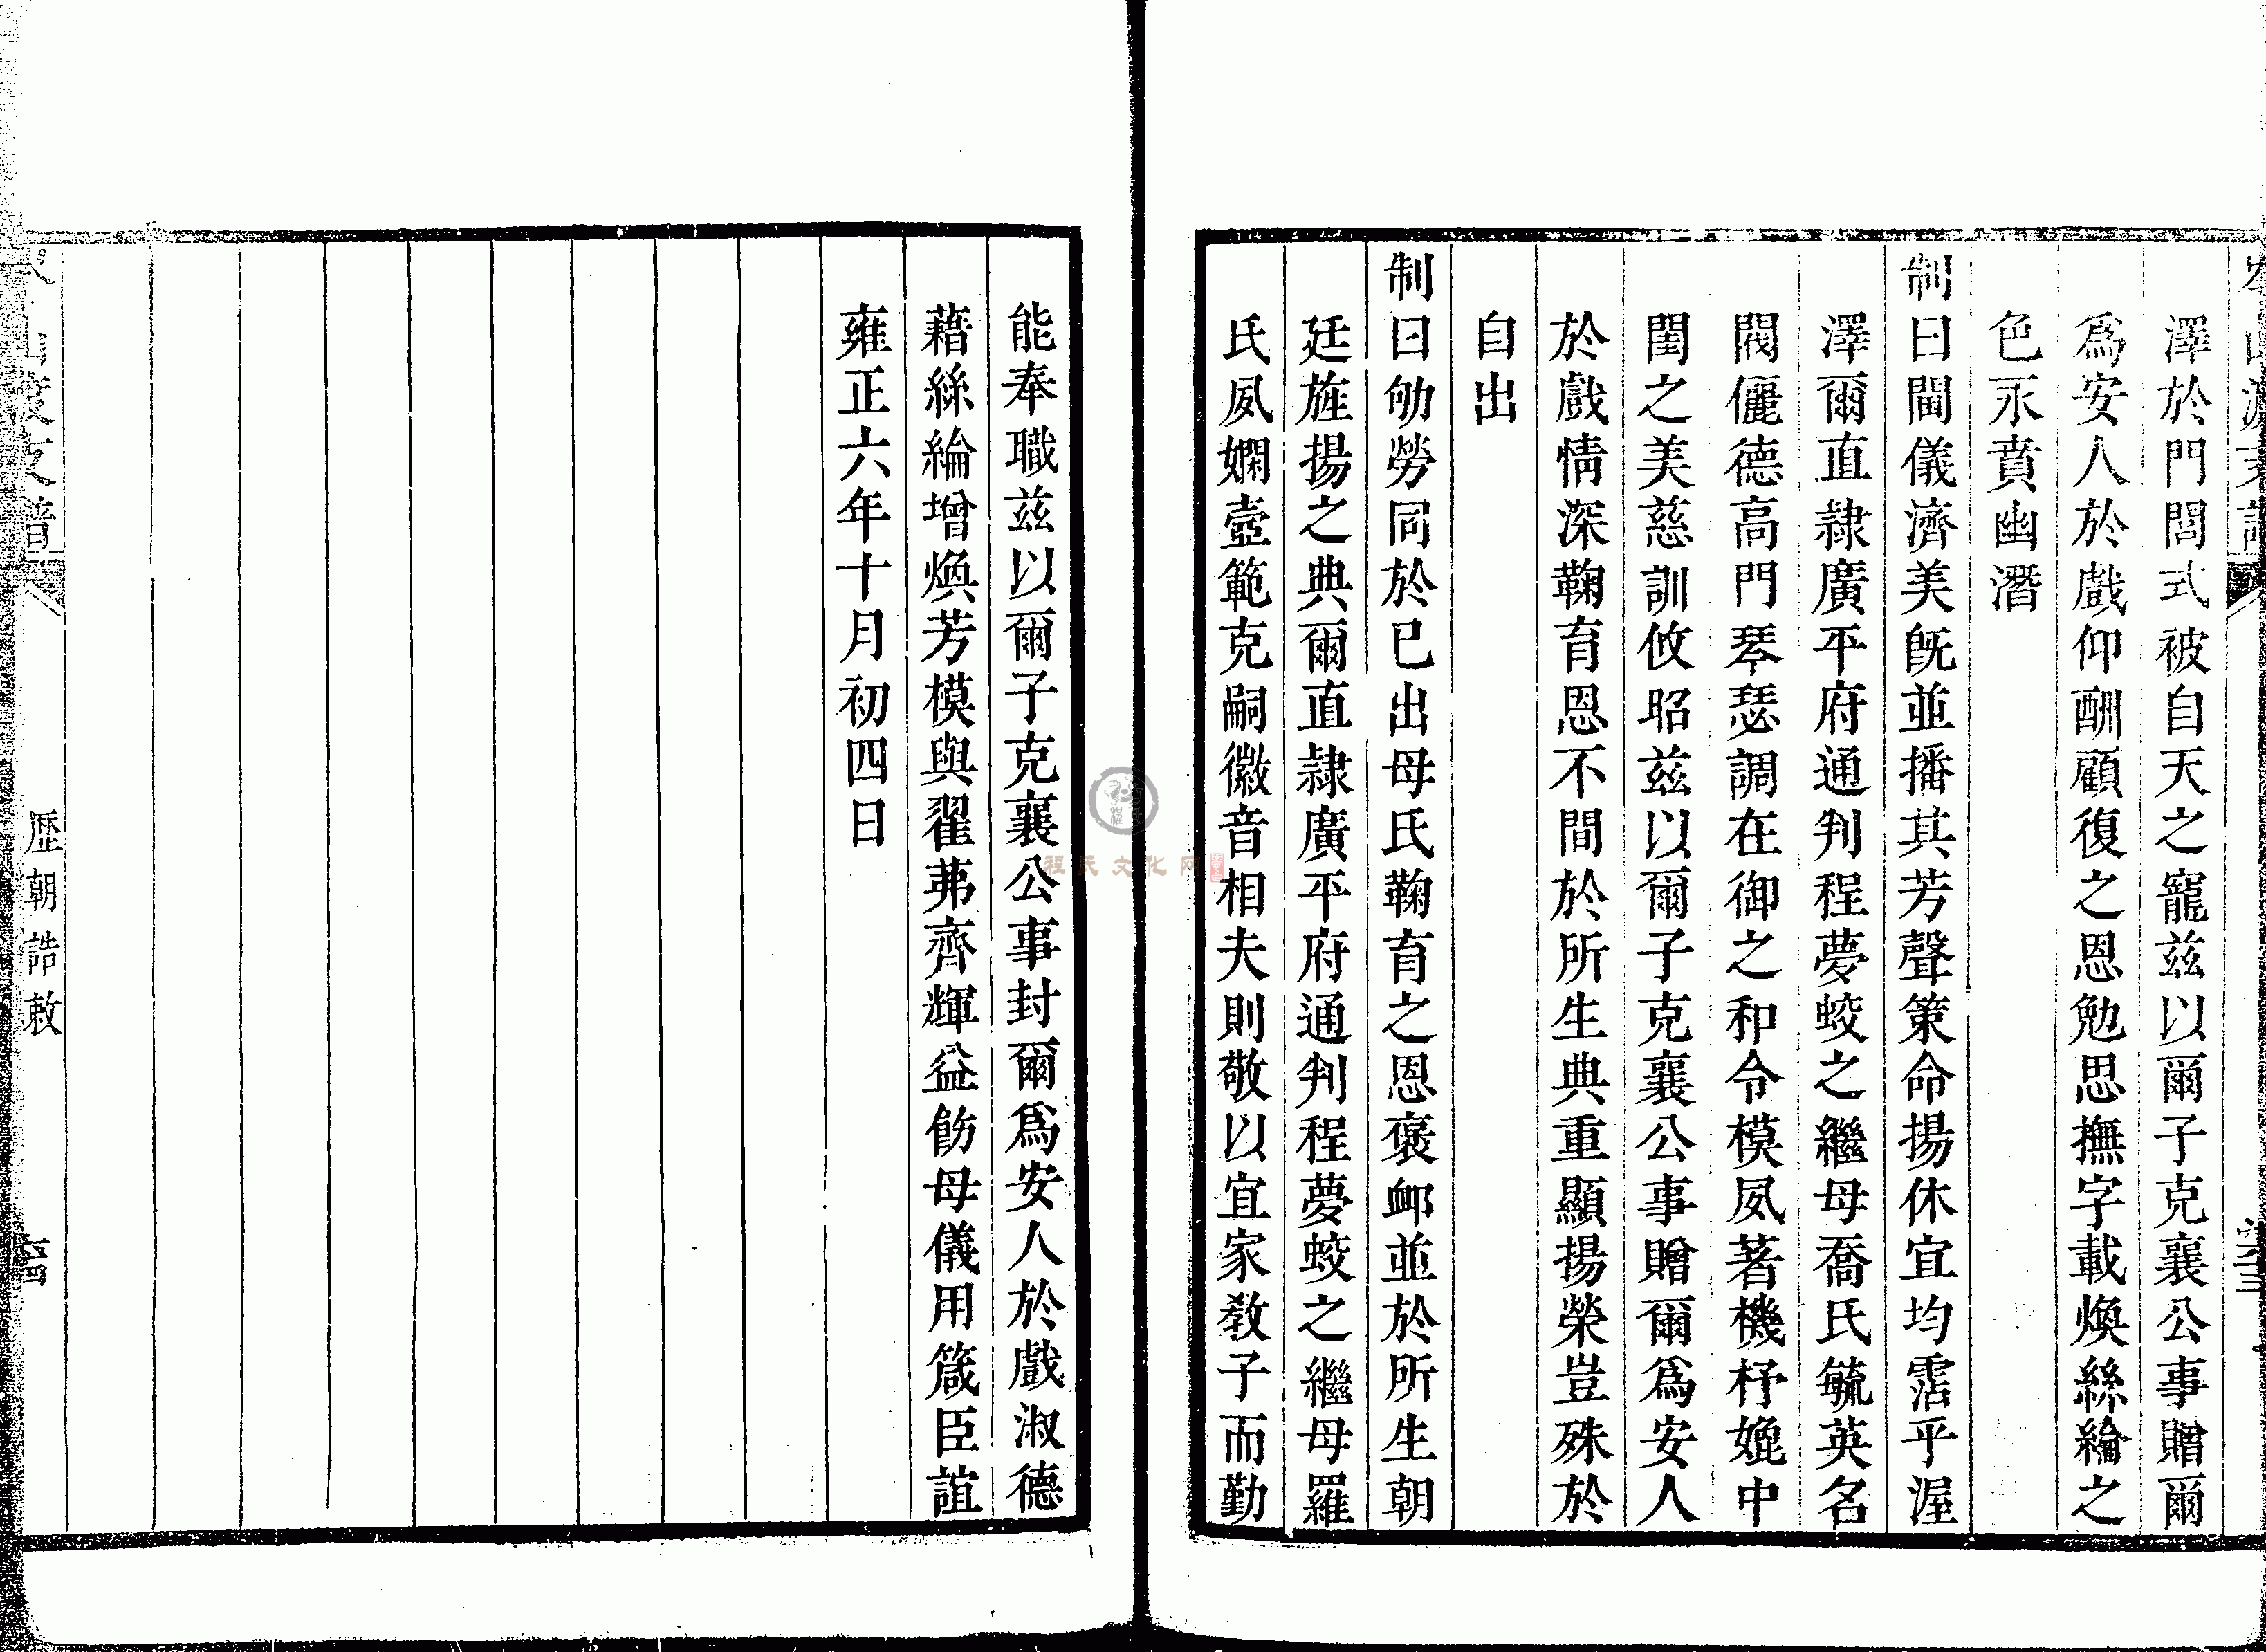 澤於門閭式被自天之寵兹以爾子克襄公事贈爾
爲安人於戲仰酬顧復之恩勉思撫字載煥絲綸之
色永賁幽潛
制曰閫儀濟美旣並播其芳聲策命揚休宜均霑乎渥
澤爾直隷廣平府通判程夢蛟之繼母喬氏毓英名
閥儷德高門琴瑟調在御之和令模夙著機杼娩中
閨之美慈訓攸昭兹以爾子克襄公事贈爾爲安人
於戲情深鞠育恩不間於所生典重顯揚榮豈殊於
自出
制曰劬勞同於已出母氏鞠育之恩褒䘏並於所生朝
廷旌揚之典爾直隷廣平府通判程夢蛟之繼母羅
氏夙嫻壼範克嗣徽音相夫則敬以宜家敎子而勤
能奉職兹以爾子克襄公事封爾爲安人於戲淑德
藉絲綸增煥芳模與翟茀齊輝益飭母儀用箴臣誼
雍正六年十月初四日
歷朝誥敕
程氏文化网